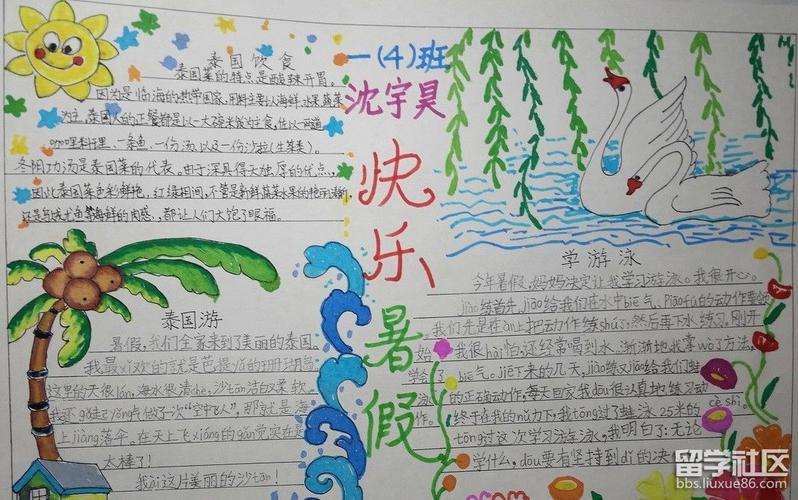 泰国饮食
泰国菜的特点是酸辣开胃。
因为是临海的热带国家,用料主要以海鲜 水果 蔬菜
为主。泰国人的正餐都是以一大碗米饭为主食,佐以一两道
咖喱料理、一条鱼、一份汤以及一份沙拉(生菜类)。
冬阴功汤是泰国菜的代表。由于深具得天独厚的优点,
因此泰国菜色彩鲜艳,红绿相间,不管是新鲜蔬菜水果的艳
海鲜的肉感,都让人们大饱了眼福。
一(4)班
沈宇昊
快乐暑假
泰国游
暑假,我们全家来到了美丽的泰国。
我最xǐ欢的就是芭提
这里的天很lán,海水很清chè,沙tān洁白柔软。
点做了一次“空中飞人”,那就是海
上jiàng落伞。在天上飞xiáng的gǎn觉实在是
太棒了!
我ài这片美丽的沙tān!
学游泳
今年暑假,妈妈决定让我学习游泳。我很开心。
jiào练首先jiāo给我们在水中biē气、piāo fú的动作要领
我们先是在àn上把动作练shú,然后再下水练习。刚开
始,我很hài怕还经常喝到水,渐渐地我掌wò了方法,
学会了biē气。jiē下来的几天,jiào练又jiāo给我们练习
泳的正确动作,每天回家我dōu很认真地练习动
作。终于在我的nǔ力下,我tōng过了蛙泳25米的
cè shì。
tōng过这次学习游泳,我明白了:无论
学什么,dōu要有坚持到dǐ的决
留学社区
bbs.liuxue86.com